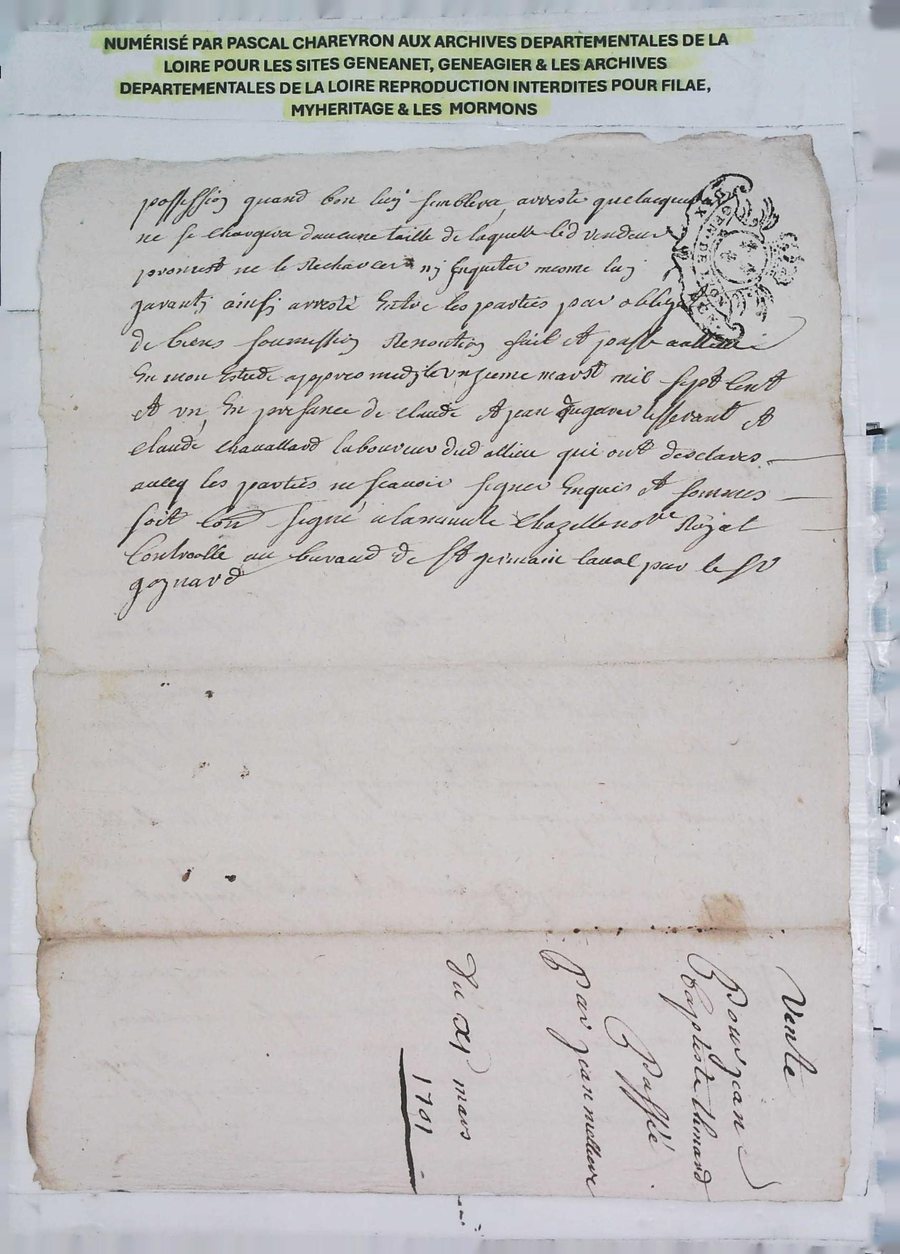 NUMÉRISÉ PAR PASCAL CHAREYRON AUX ARCHIVES DEPARTEMENTALES DE LA
LOIRE POUR LES SITES GENEANET, GENEAGIER & LES ARCHIVES
DEPARTEMENTALES DE LA LOIRE REPRODUCTION INTERDITES POUR FILAE,
MYHERITAGE & LES MORMONS
possession quand bon luy semblera, arresté que lacquereur
ne se chargera daucune taille de laquelle led vendeur
promest ne le Rechercer ny Enquiter mesme luy
garantj ainsy arresté Entre les parties par
de biens soumission Renontion fait et passé
En mon Estude appres medj le unzieme marst mil sept cent
et un En presance de claude et jean et
claude chavallard laboureur dud allieu qui ont desclarés
avecq les parties ne scavoir signer Enquis et sommes
soit con signé a la minutte Chazelle no.re Royal
Controolle au buraud de St germain laval par le Sr
goynard
Vente
Pour jean
Baptiste
Passée
Par jean
du xj mars
1701